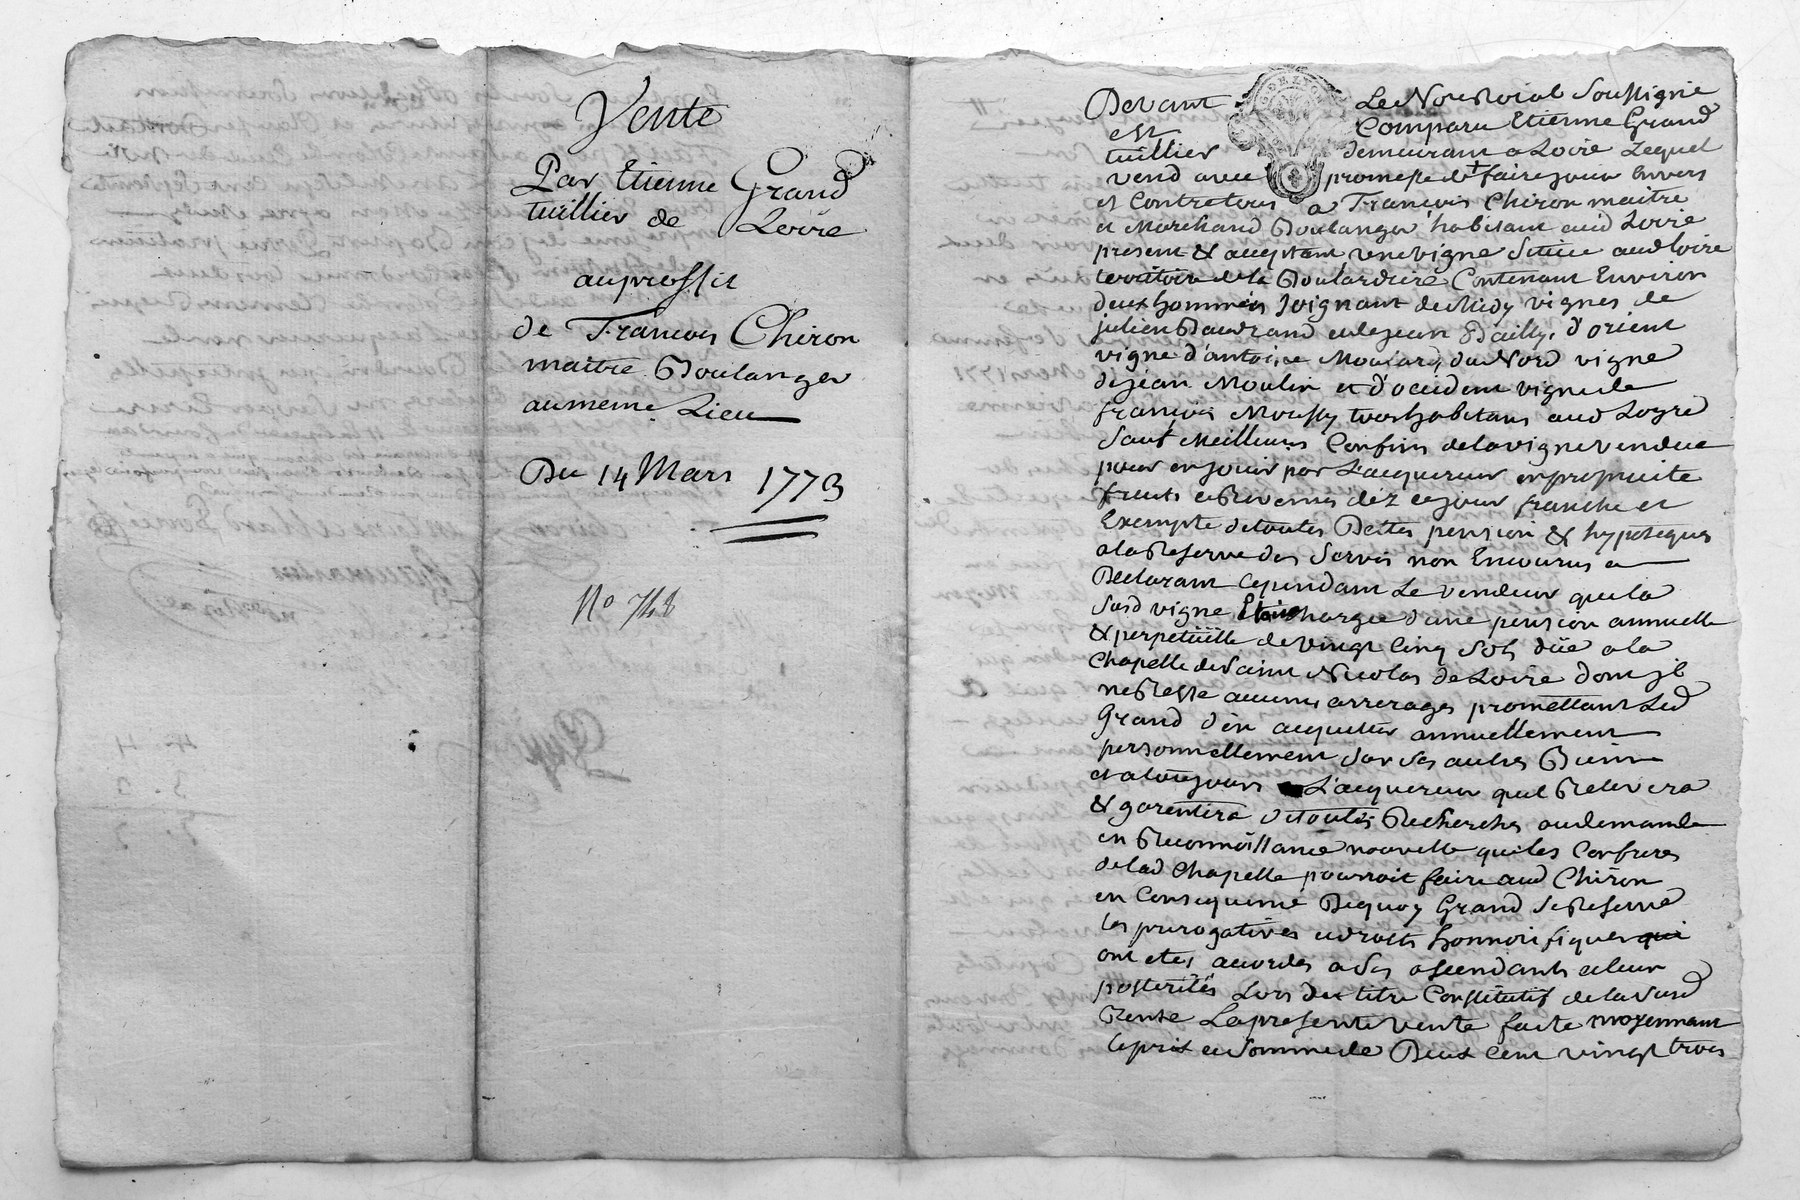 Vente
Par Etienne Grand
tuillier de Loire
au proffit
de Francois Chiron
maitre Boulanger
au meme Lieu
Du 14 Mars 1773
N° 748
Devant Le Nore Roial Soussigné
est Comparu Etienne Grand
tuillier demeurant a Loire Lequel
vend avec promesse de faire jouir Envers
et Contre tous a François Chiron maitre
et Marchand Boulanger habitant aud Loire
present & acceptant une vigne Situee aud Loire
territoire de la Boulardiere Contenant Environ
deux hommées Joignant de Midy vignes de
julien Baudrand et de jean Bailly, d'orient
vigne d'antoine Moulard, du Nord vigne
de jean Moulin et d'occident vigne de
françois Moussy tous habitans aud Loyre
Sauf Meilleurs Confins de la vigne vendue
pour en jouir par L'acquereur en propriete
fruits et Revenus dez ce jour franche et
Exempte de toutes Dettes pension & hypoteques
a la Reserve des Servis non Encourus
Declarant Cependant Le vendeur que la
Susd vigne Etoit Chargee d'une pension annuelle
& perpetüelle de vingt Cinq Sols düe a la
Chapelle de Saint Nicolas de Loire dont jl
ne Reste aucuns arrerages promettant Led
Grand d'en acquitter annuellement
personnellement Sur Ses autres Biens
et a toujours L'acquereur quil Relevera
& garentira de toutes Recherches ou demande
en Reconnoissance nouvelle que les Confreres
de lad Chapelle pourroit faire aud Chiron
en Consequence Dequoy Grand Se Reserve
les prerogatives et droits honnorifiques qui
ont etes accordes a Ses ascendants et leur
posterités Lors du titre Constitutif de la Susd
Rente La presente vente faite moyennant
le prix et Somme de Deux Cent vingt trois